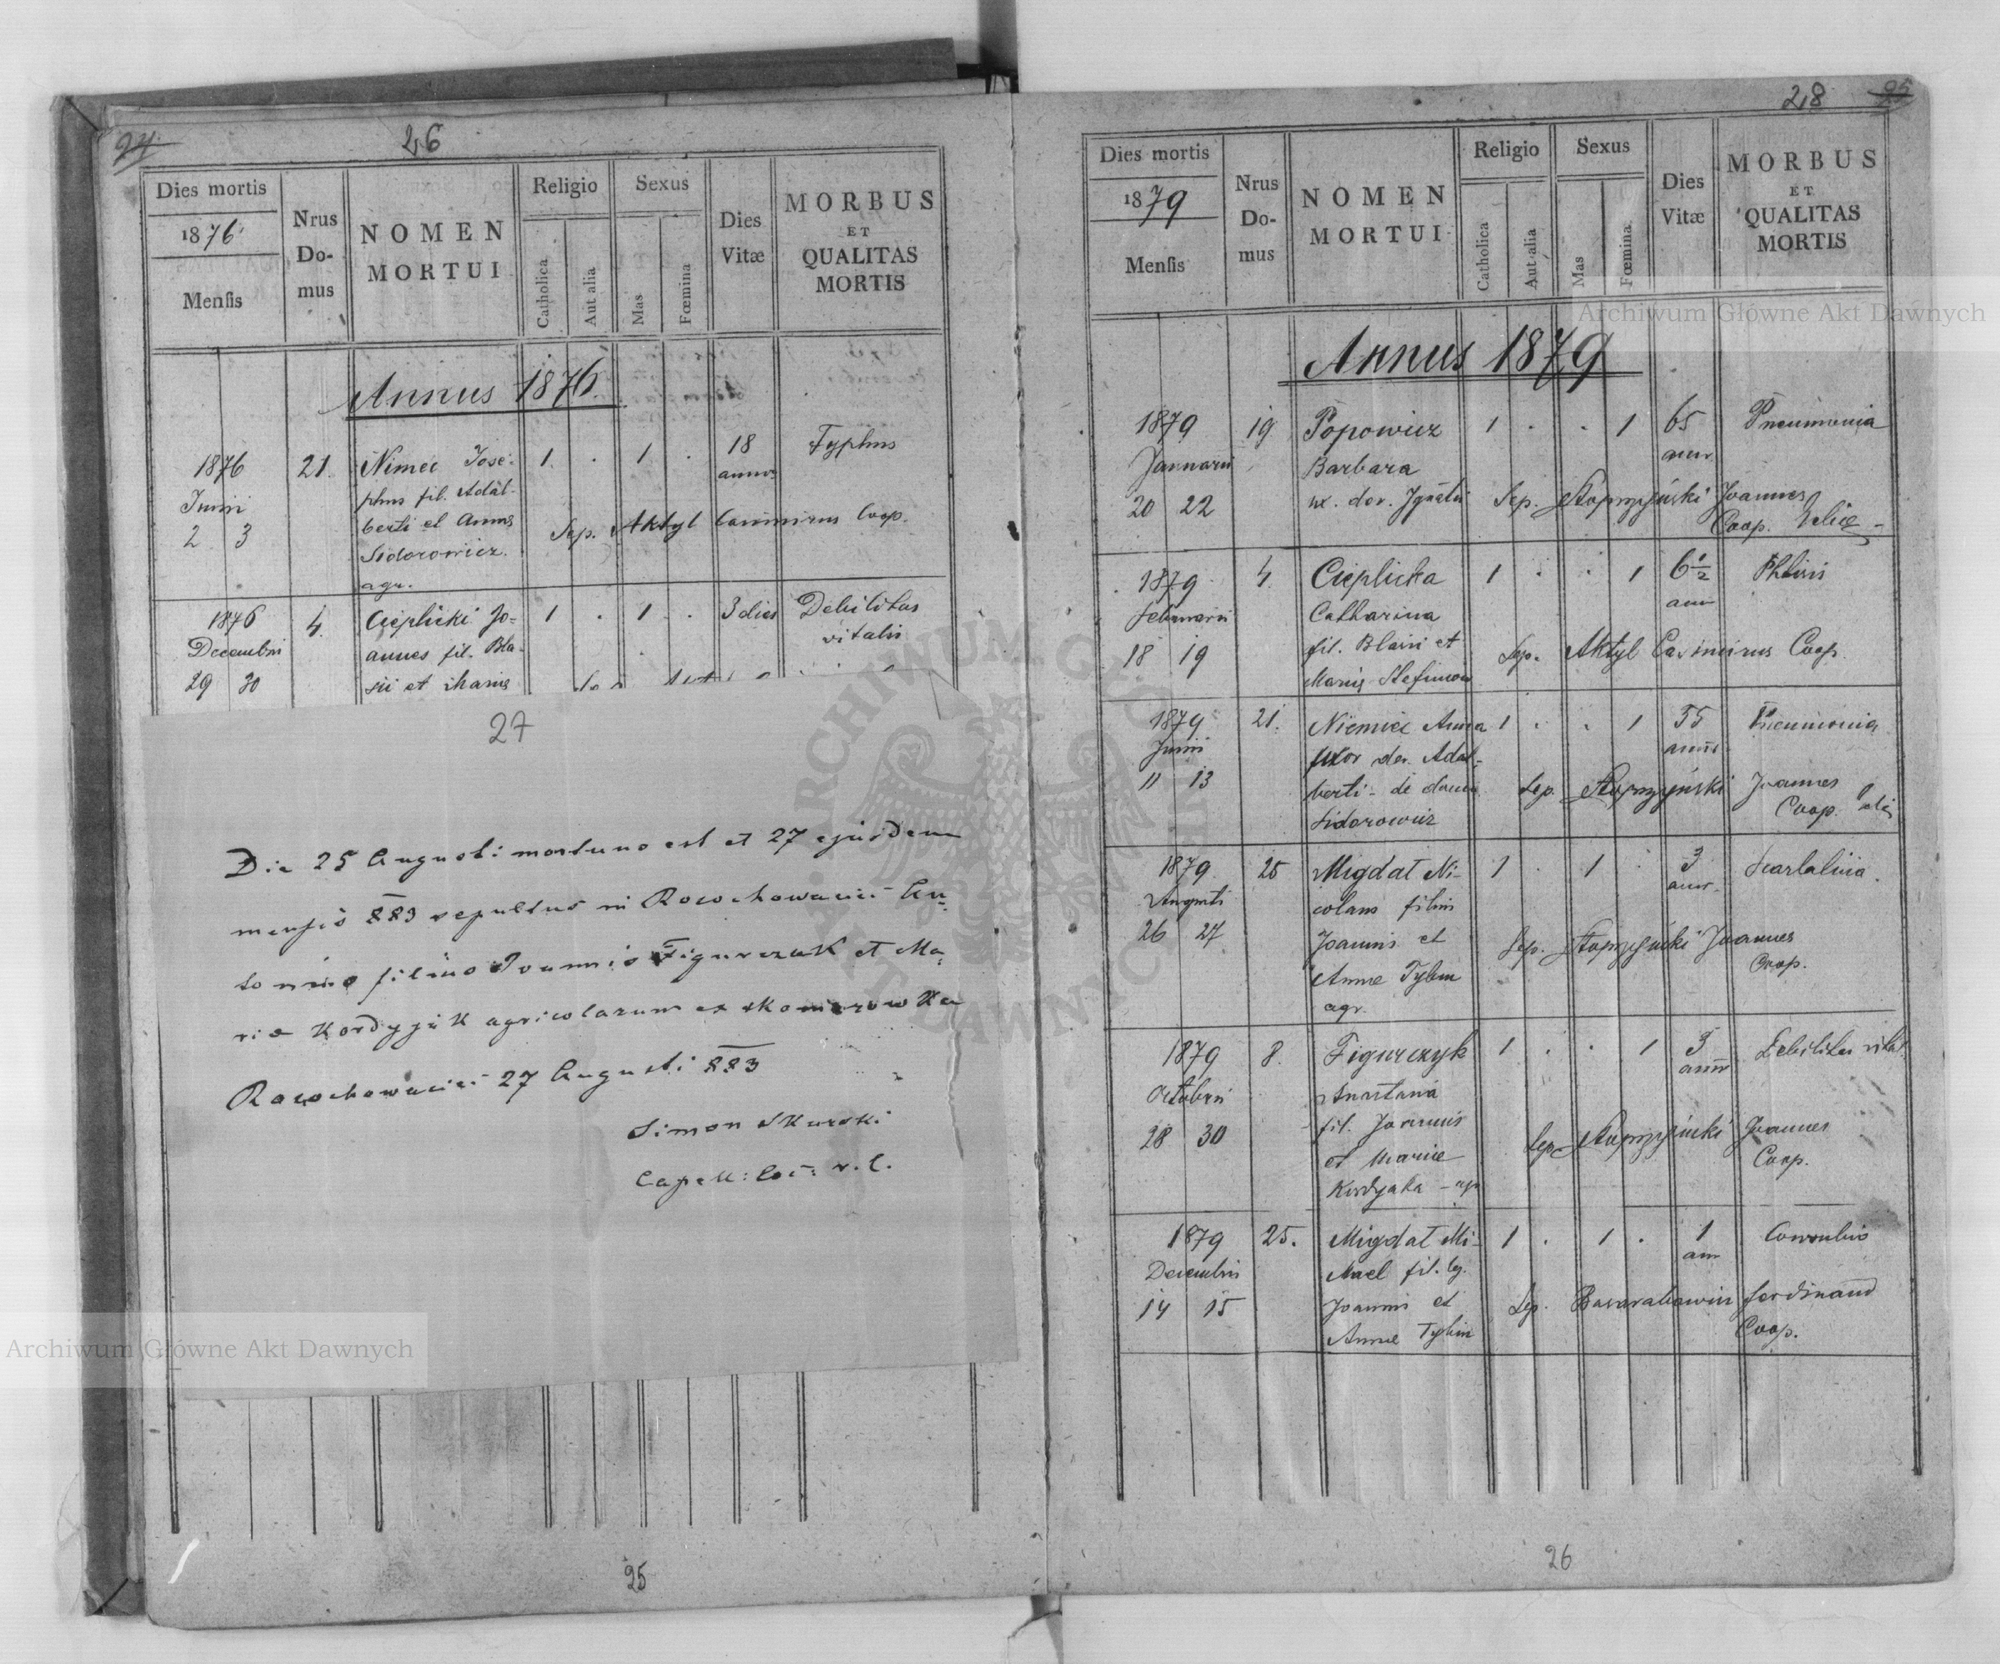 24
26
Dies mortis
1876
Mensis
Nrus Do-mus
NOMEN MORTUI
Religio
Catholica
Aut alia
Sexus
Mas
Fœmina
Dies Vitæ
MORBUS
ET
QUALITAS
MORTIS
Annus 1876.
1876 21. Nimec Jose- 1. . 1 . 18 Typhus
Junii phus fil. Adal- annor
2 3 berti et Annæ Sep. Aktyl Casimirus Coop.
Sidorowicz.
agr.
1876 4. Cieplicki Jo- 1 . 1 . 3 dies Debilitas
Decembris annes fil. Bla- vitalis
29 30 sii et Mariæ
27
Die 25 Augusti mortuus est et 27 ejusdem
mensis 883 sepultus in Rosochowaciec An-
toninus filius Joannis Figurczuk et Ma-
ria Kordyjak agricolarum ex Skomorowka
Rosochowaciec 27 Augusti 883
Simon Skurski
Capell: loc: r. l.
25
28
25
Dies mortis
1879
Mensis
Nrus Do-mus
NOMEN MORTUI
Religio
Catholica
Aut alia
Sexus
Mas
Fœmina
Dies Vitæ
MORBUS
ET
QUALITAS
MORTIS
Annus 1879
1879 19 Popowicz 1 . . 1 65 Pneumonia
Januarii Barbara annr.
20 22 ux. der. Ignatii Sep. Joannes
Coop.
1879 4. Cieplicka 1 . . 1 6 1/2 Phtisis
Februarii Catharina ann
18 19 fil. Blasii et Sep. Aktyl Casimirus Coop.
Mariæ Stefunow
1879 21. Niemiec Anna 1 . . 1 55 Pneumonia
Junii uxor der. Adal- annr
11 13 berti - de domo Sep. Joannes
Sidorowicz Coop.
1879 25 Migdat Ni- 1 . 1 . 3 Scarlatina.
Augusti colaus filius annr.
26 27 Joannis et Sep. Joannes
Annæ Tybin Coop.
agr.
1879 8. Figurczyk 1 . . 1 3 Debilitas vital
Octobris Anastasia annr
28 30 fil. Joannis Sep. Joannes
et Mariæ Coop.
Kordyaka - agr
1879 25. Migdat Mi- 1 . 1 . 1 Convulsio
Decembris chael fil. lg. ann
14 15 Joannis et Sep. Basarabowicz Ferdinand
Annæ Tybin Coop.
26
Archiwum Główne Akt Dawnych
Archiwum Główne Akt Dawnych
ARCHIWUM GŁÓWNE AKT DAWNYCH